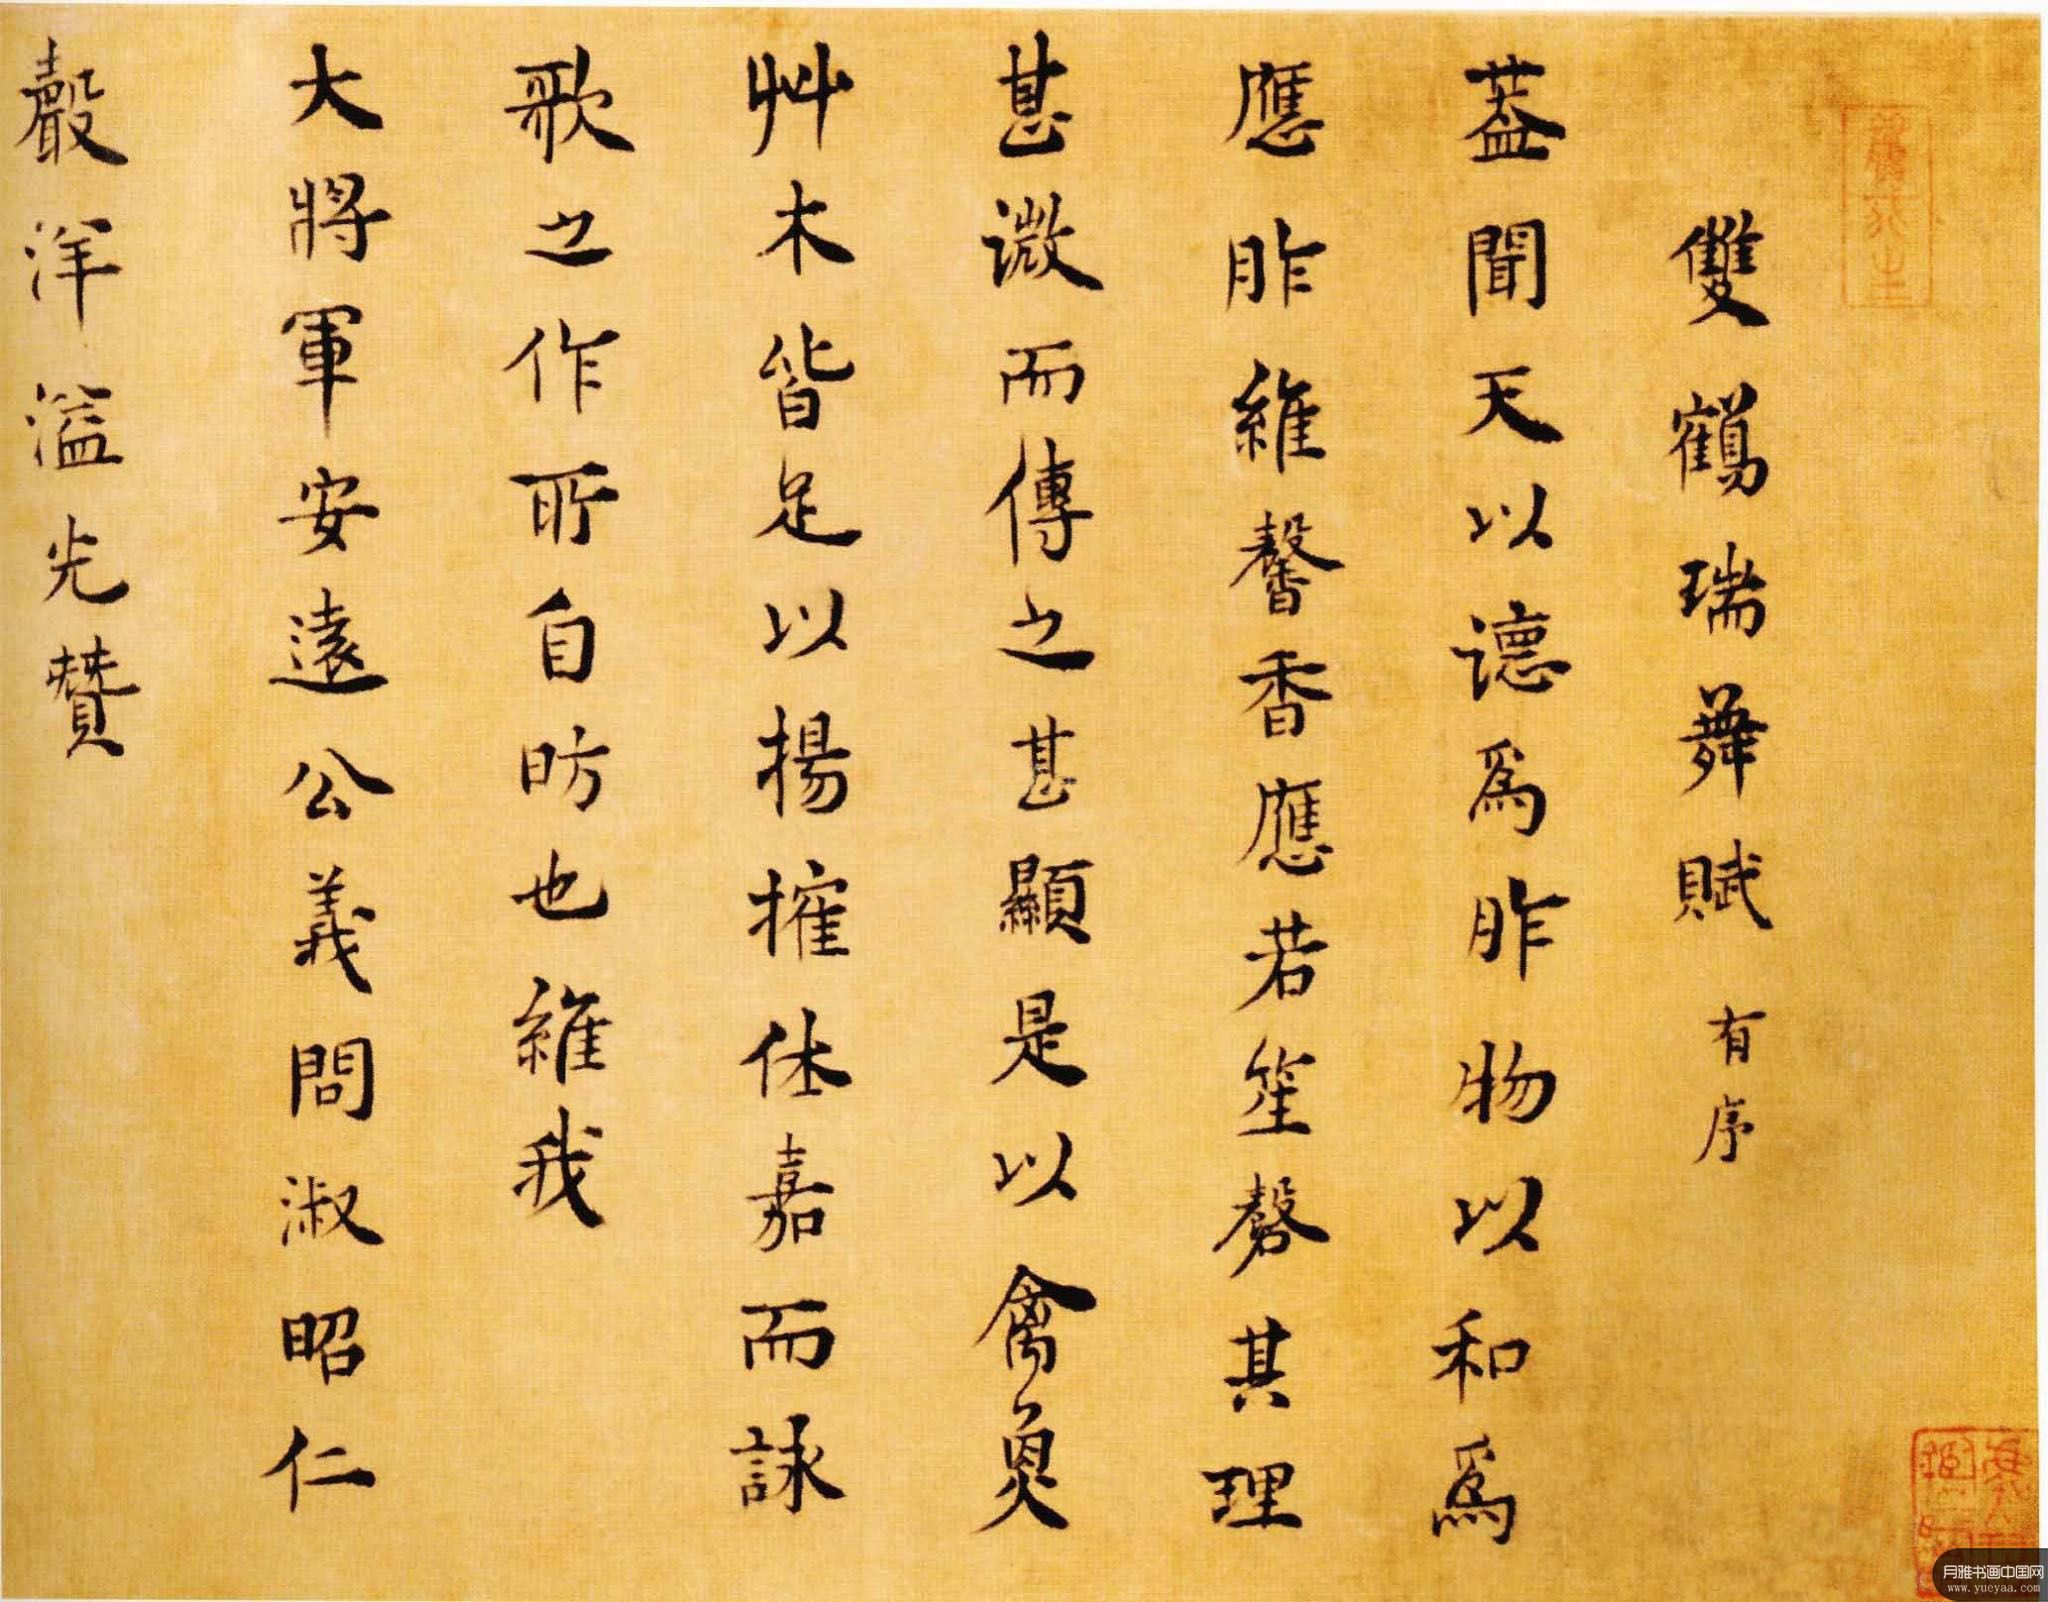 雙鶴瑞舞賦 有序
葢聞天以德爲昨物以和爲
應昨維馨香應若笙磬其理
甚微而傳之甚顯是以禽魚
艸木皆足以揚搉休嘉而詠
歌之作所自昉也維我
大將軍安遠公義問淑昭仁
聲洋溢光贊
月雅书画中国网
www.yueyaa.com